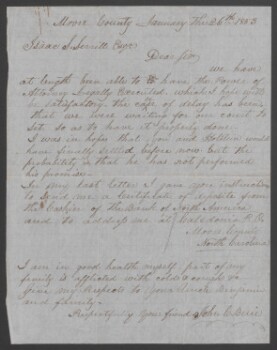 Moore County January the 26th 1853
Isaac S.
Dear Sir
We have
at length been able to have the Power of
Attorney Legally Executed which I hope will
be satisfactory. the cause of delay has been
that we were waiting for our court to
set so as to have it properly done.
It was in hope that you and Rollins would
have finally settled before now but the
probability is that he has not performed
his promise.
In my last letter I gave you instruction
to send me a Certificate of deposite from
the Cashier of the Bank of
and to address me at Caledonia P.O.
Moore County
North Carolina
I am in good health myself part of my
family is afflicted with colds & cough
give my Respects to your Uncle Benjamin
and family.
Respectfully Your friend John C.